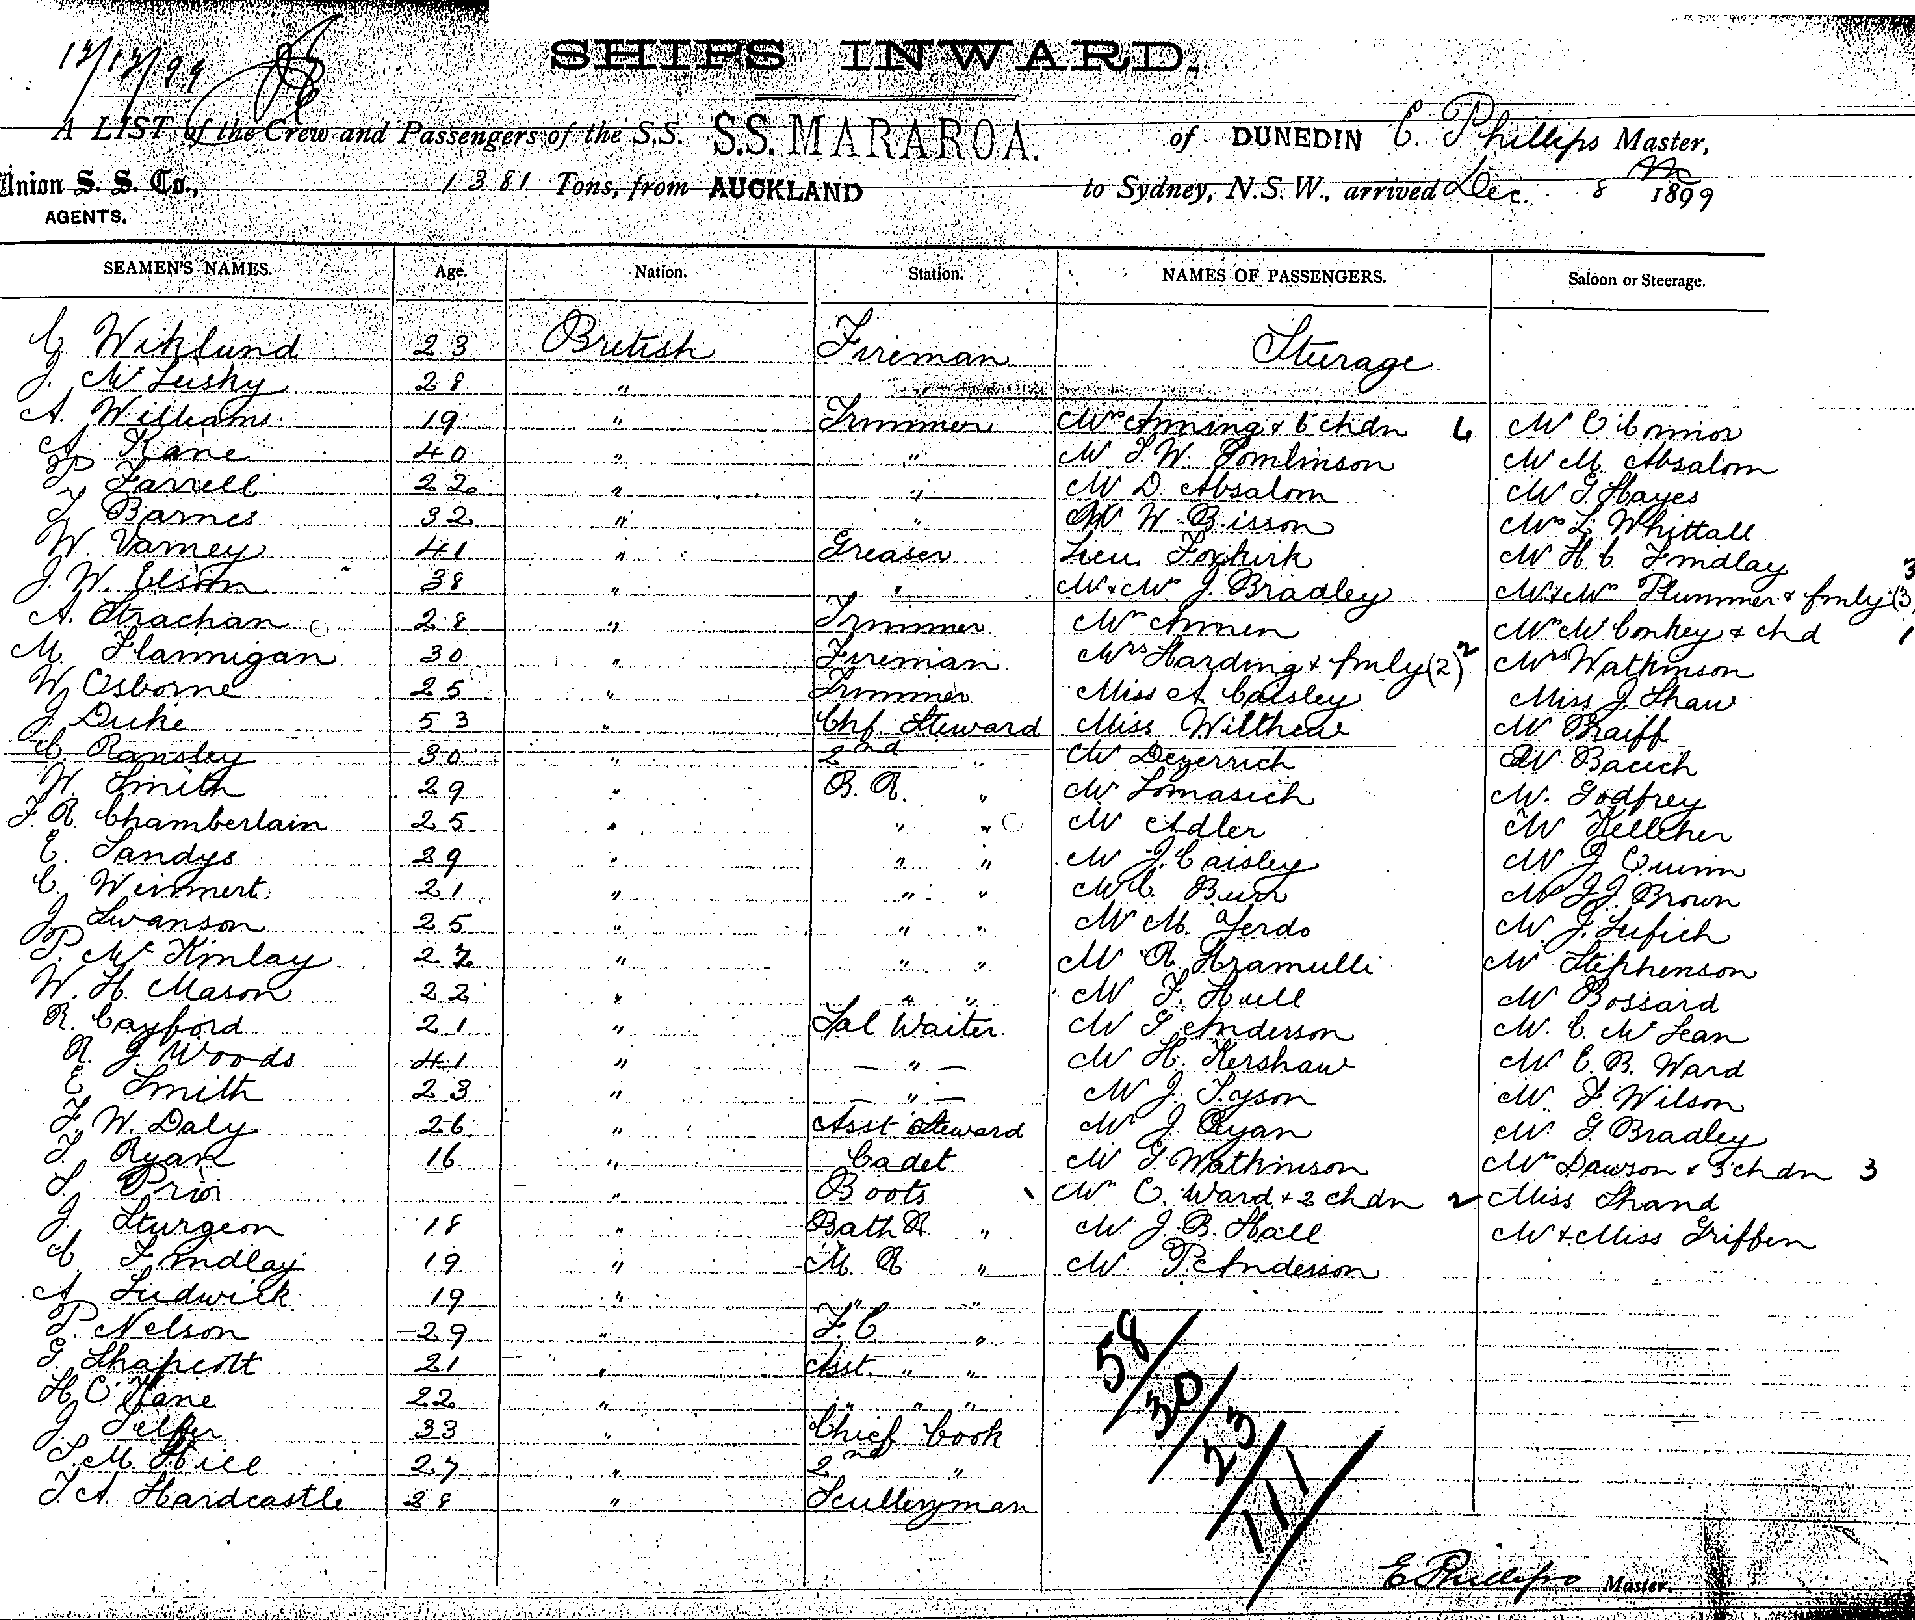 12/12/99
SHIPS INWARD.
A LIST of the Crew and Passengers of the S.S. S.S. MARAROA. of DUNEDIN C. Phillips Master,
Union S. S. Co., 1381 Tons, from AUCKLAND to Sydney, N.S.W., arrived Dec. 8 1899
AGENTS.
SEAMEN'S NAMES. Age. Nation. Station. NAMES OF PASSENGERS. Saloon or Steerage.
C Wiklund 23 British Fireman Sturage
J. McLusky 28 " "
A. Williams 19 " Trimmer Mrs Anning & 6 chdn 6 Mr O'Connor
A. Kane 40 " " Mr T. W. Tomlinson Mr M. Absalom
P Farrell 22 " " Mr D. Absalom Mr T Hayes
T Barnes 32 " " Mr W. Bisson Mrs L. Whittall
W. Varney 41 " Greaser Lieu. Foxkirk Mr H. C. Findlay
J. W. Elsom 38 " " Mr & Mrs J. Bradley Mr & Mrs Plummer & fmly (3) 3
A. Strachan 28 " Trimmer Mrs Mc Conkey & chd 1
M. Flannigan 30 " Fireman Mrs Harding & fmly (2) 2 Mrs Watkinson
W Osborne 25 " Trimmer Miss A Caisley Miss J. Shaw
J. Duke 53 " Chf Steward Miss Wilthew Mr Braiff
C. Ransley 30 " 2nd " Mr Dezerrich Mr Bacich
W. Smith 29 " B. R. " Mr Lomasich Mr. Godfrey
F. R. Chamberlain 25 " " " Mr Adler Mr Kelleher
E. Sandys 29 " " " Mr J. Caisley Mr J Quinn
C. Weinmert 21 " " " Mr C. Burr Mr J. J. Brown
J Swanson 25 " " " Mr M. Yerdo Mr J. Lufich
P. McKinlay 27 " " " Mr R. Hramulli Mr Stephenson
W. H. Mason 22 " " " Mr F. Hull Mr Bossard
R. Cayford 21 " Sal Waiter Mr G Anderson Mr. C. McLean
R. J Woods 41 " — " — Mr H. Kershaw Mr C. B. Ward
E Smith 23 " — " — Mr J. Tyson Mr. F. Wilson
F. W. Daly 26 " Asst Steward Mr J Ryan Mr G Bradley
T Ryan 16 " Cadet Mr G Watkinson Mrs Dawson & 3 chdn 3
S. Prior " Boots Mrs C. Ward & 2 chdn 2 Miss Shand
J. Sturgeon 18 " Bath R " Mr J. B. Hall Mr & Miss Griffen
C. Findlay 19 " M. R " Mr P. Anderson
A. Ludwick 19 " " "
P. Nelson 29 " F. C "
G. Shapcott 21 " Asst. " "
H O'Kane 22 " " " "
J Telfer 33 " Chief Cook
S. M. Hill 27 " 2nd "
T. A. Hardcastle 28 " Sculleryman
58/30/23/111
E Phillips Master.